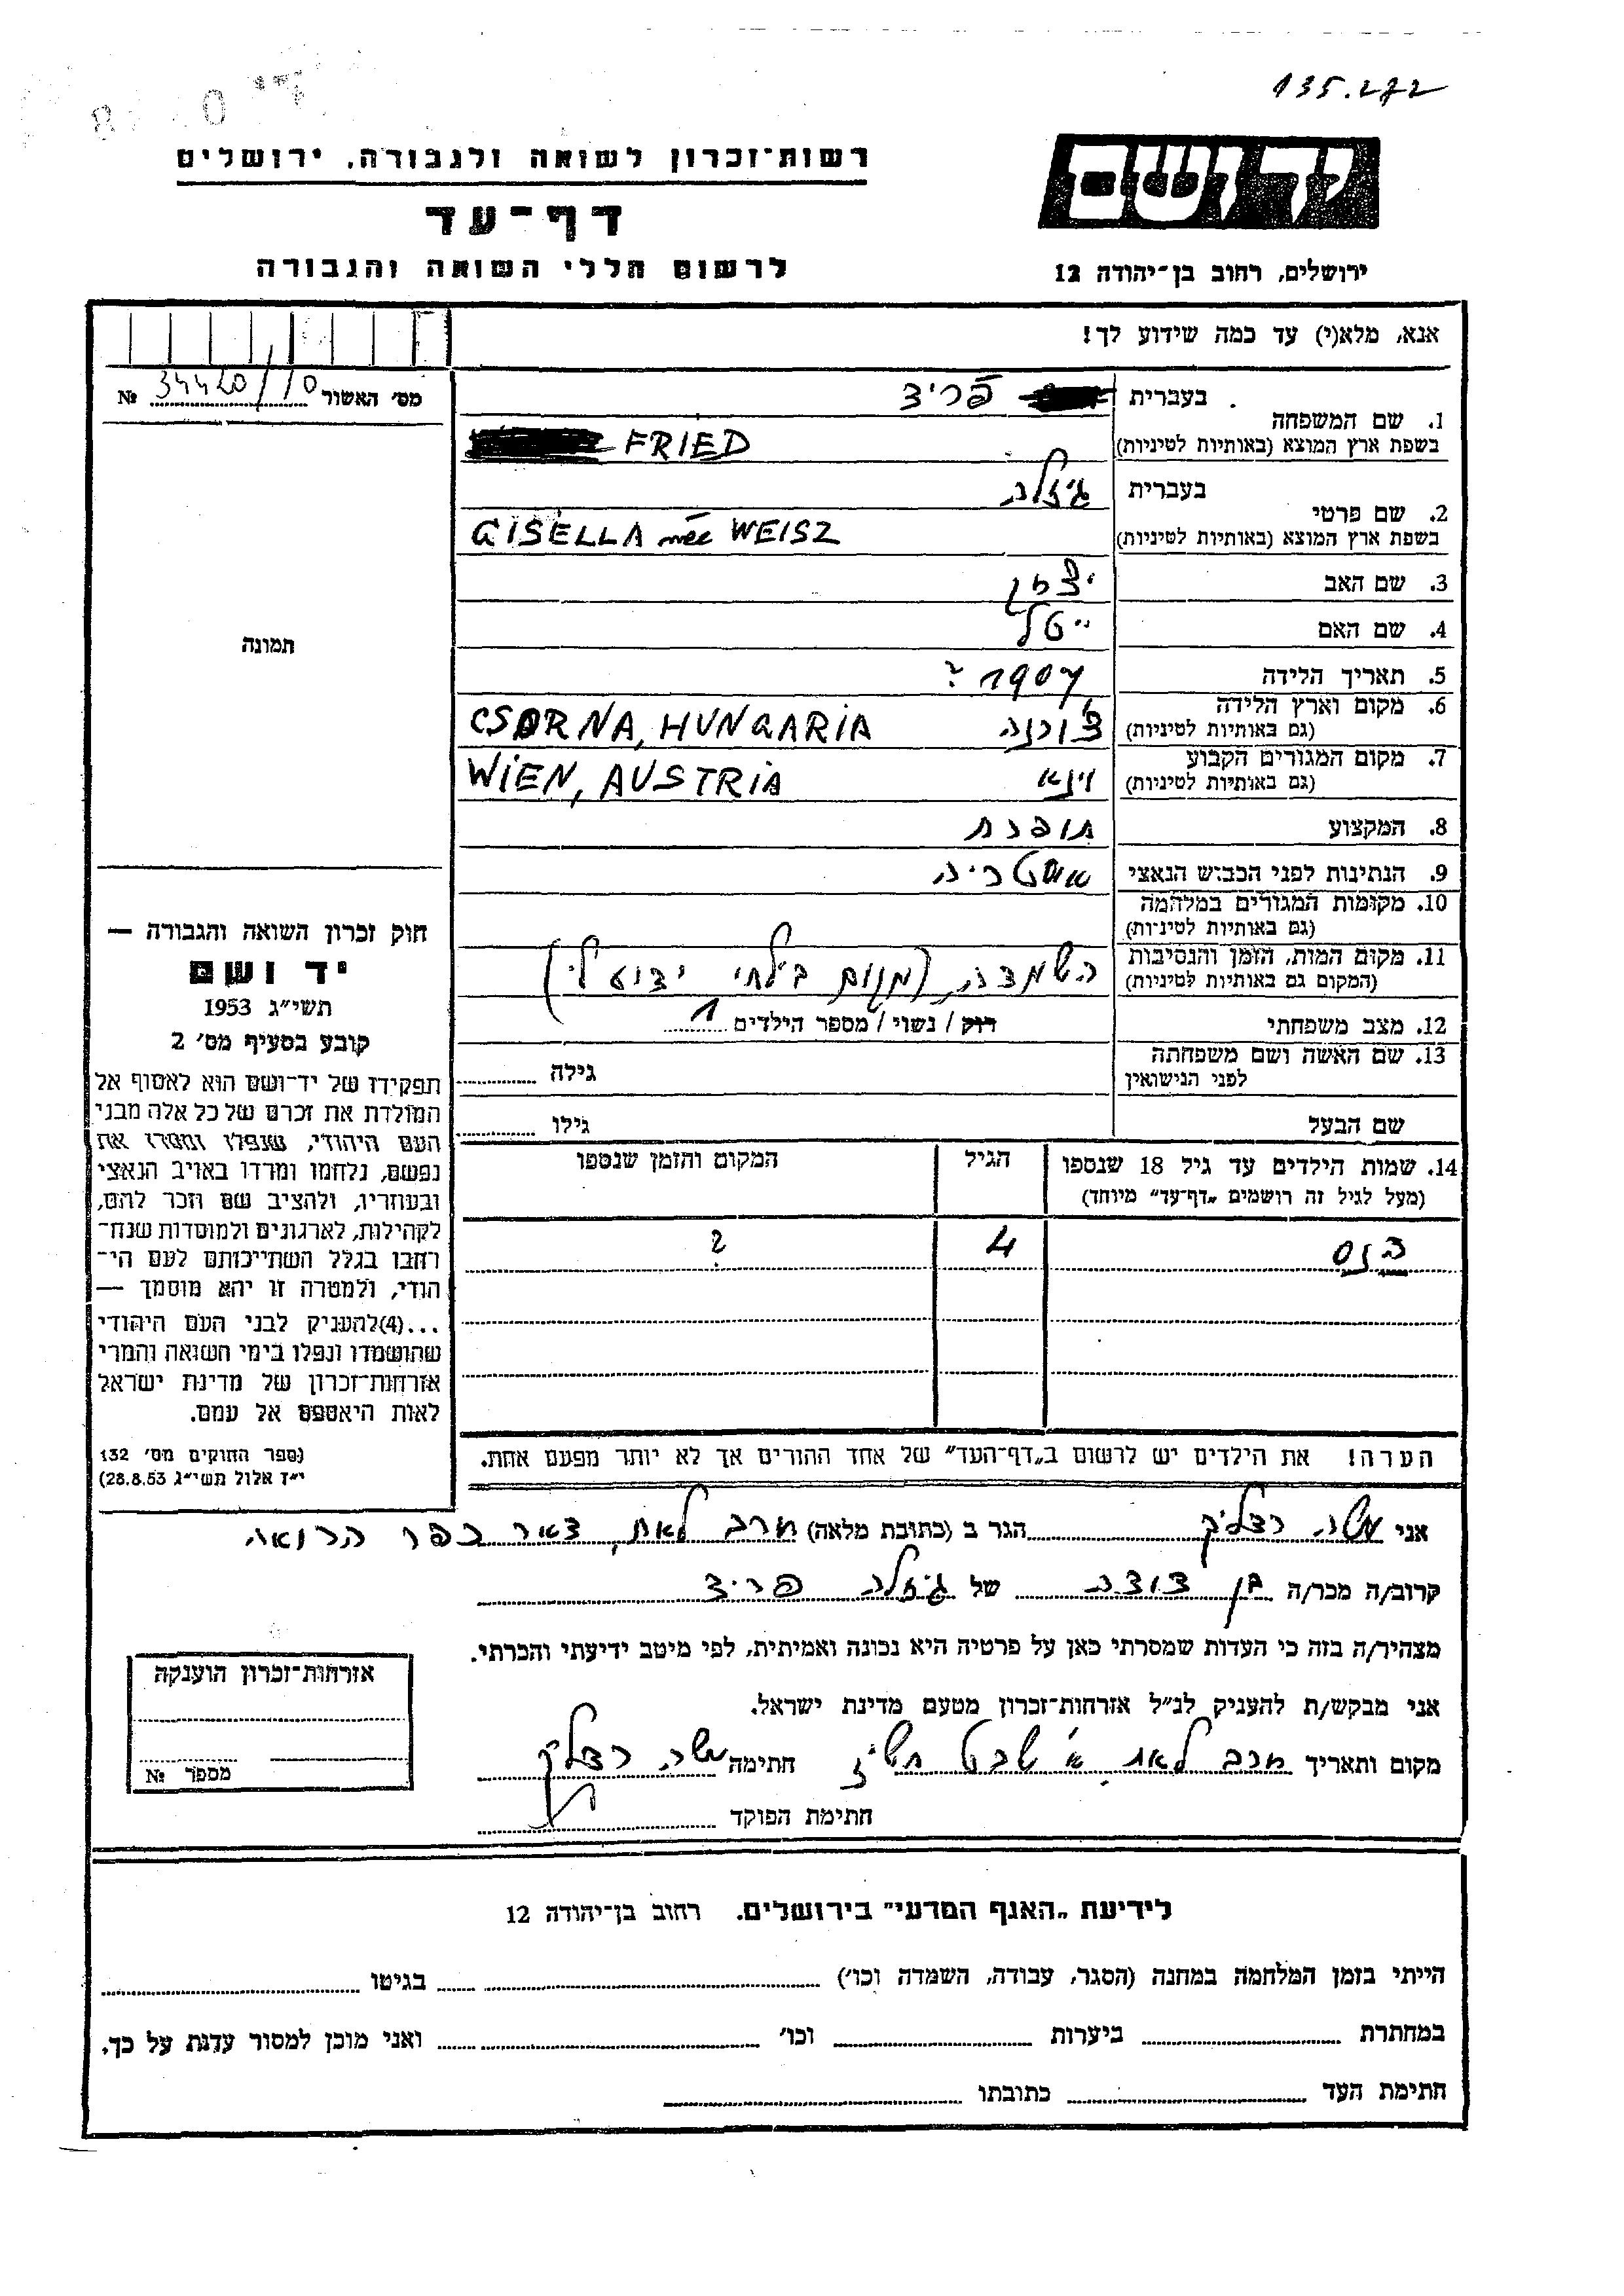 135.272
רשות־זכרון לשואה ולגבורה, ירושלים
יד ושם
דף־עד
לרשום חללי השואה והגבורה
ירושלים, רחוב בן־יהודה 12
אנא, מלא(י) עד כמה שידוע לך!
מס׳ האשור 34420/10 №
בעברית פריד
1. שם המשפחה
בשפת ארץ המוצא (באותיות לטיניות) FRIED
בעברית גיזלה
2. שם פרטי
בשפת ארץ המוצא (באותיות לטיניות) GISELLA née WEISZ
3. שם האב יצחק
4. שם האם ייטל
תמונה
5. תאריך הלידה 1907 ?
6. מקום וארץ הלידה
(גם באותיות לטיניות) צ'ורנה CSORNA, HUNGARIA
7. מקום המגורים הקבוע
(גם באותיות לטיניות) וינא WIEN, AUSTRIA
8. המקצוע תופרת
9. הנתינות לפני הכבוש הנאצי אוסטריה
10. מקומות המגורים במלחמה
(גם באותיות לטיניות)
11. מקום המות, הזמן והנסיבות
(המקום גם באותיות לטיניות) השמדה, (מקום בילתי ידוע לי)
12. מצב משפחתי רוק / נשוי / מספר הילדים 1
13. שם האשה ושם משפחתה
לפני הנישואין גילה
שם הבעל גילו
14. שמות הילדים עד גיל 18 שנספו הגיל המקום והזמן שנספו
(מעל לגיל זה רושמים „דף־עד״ מיוחד)
4 ?
הערה! את הילדים יש לרשום ב„דף־העד״ של אחד ההורים אך לא יותר מפעם אחת.
חוק זכרון השואה והגבורה —
יד ושם
תשי״ג 1953
קובע בסעיף מס׳ 2
תפקידו של יד־ושם הוא לאסוף אל
המולדת את זכרם של כל אלה מבני
העם היהודי, שנפלו ומסרו את
נפשם, נלחמו ומרדו באויב הנאצי
ובעוזריו, ולהציב שם וזכר להם,
לקהילות, לארגונים ולמוסדות שנח־
רחבו בגלל השתייכותם לעם הי־
הודי, ולמטרה זו יהא מוסמך —
...(4)להעניק לבני העם היהודי
שהושמדו ונפלו בימי השואה והמרי
אזרחות־זכרון של מדינת ישראל
לאות היאספם אל עמם.
(ספר החוקים מס׳ 132
י״ז אלול תשי״ג 28.8.53)
אני משה הגר ב (כתובת מלאה) דאר כפר הרואה
קרוב/ה מכר/ה בן דודה של גיזלה פריד
מצהיר/ה בזה כי העדות שמסרתי כאן על פרטיה היא נכונה ואמיתית, לפי מיטב ידיעתי והכרתי.
אני מבקש/ת להעניק לנ״ל אזרחות־זכרון מטעם מדינת ישראל.
מקום ותאריך א׳ שבט חתימה משה
חתימת הפוקד
אזרחות־זכרון הוענקה
מספר №
לידיעת „האגף המדעי״ בירושלים. רחוב בן־יהודה 12
הייתי בזמן המלחמה במחנה (הסגר, עבודה, השמדה וכו׳) בגיטו
במחתרת ביערות וכו׳ ואני מוכן למסור עדות על כך.
חתימת העד כתובתו